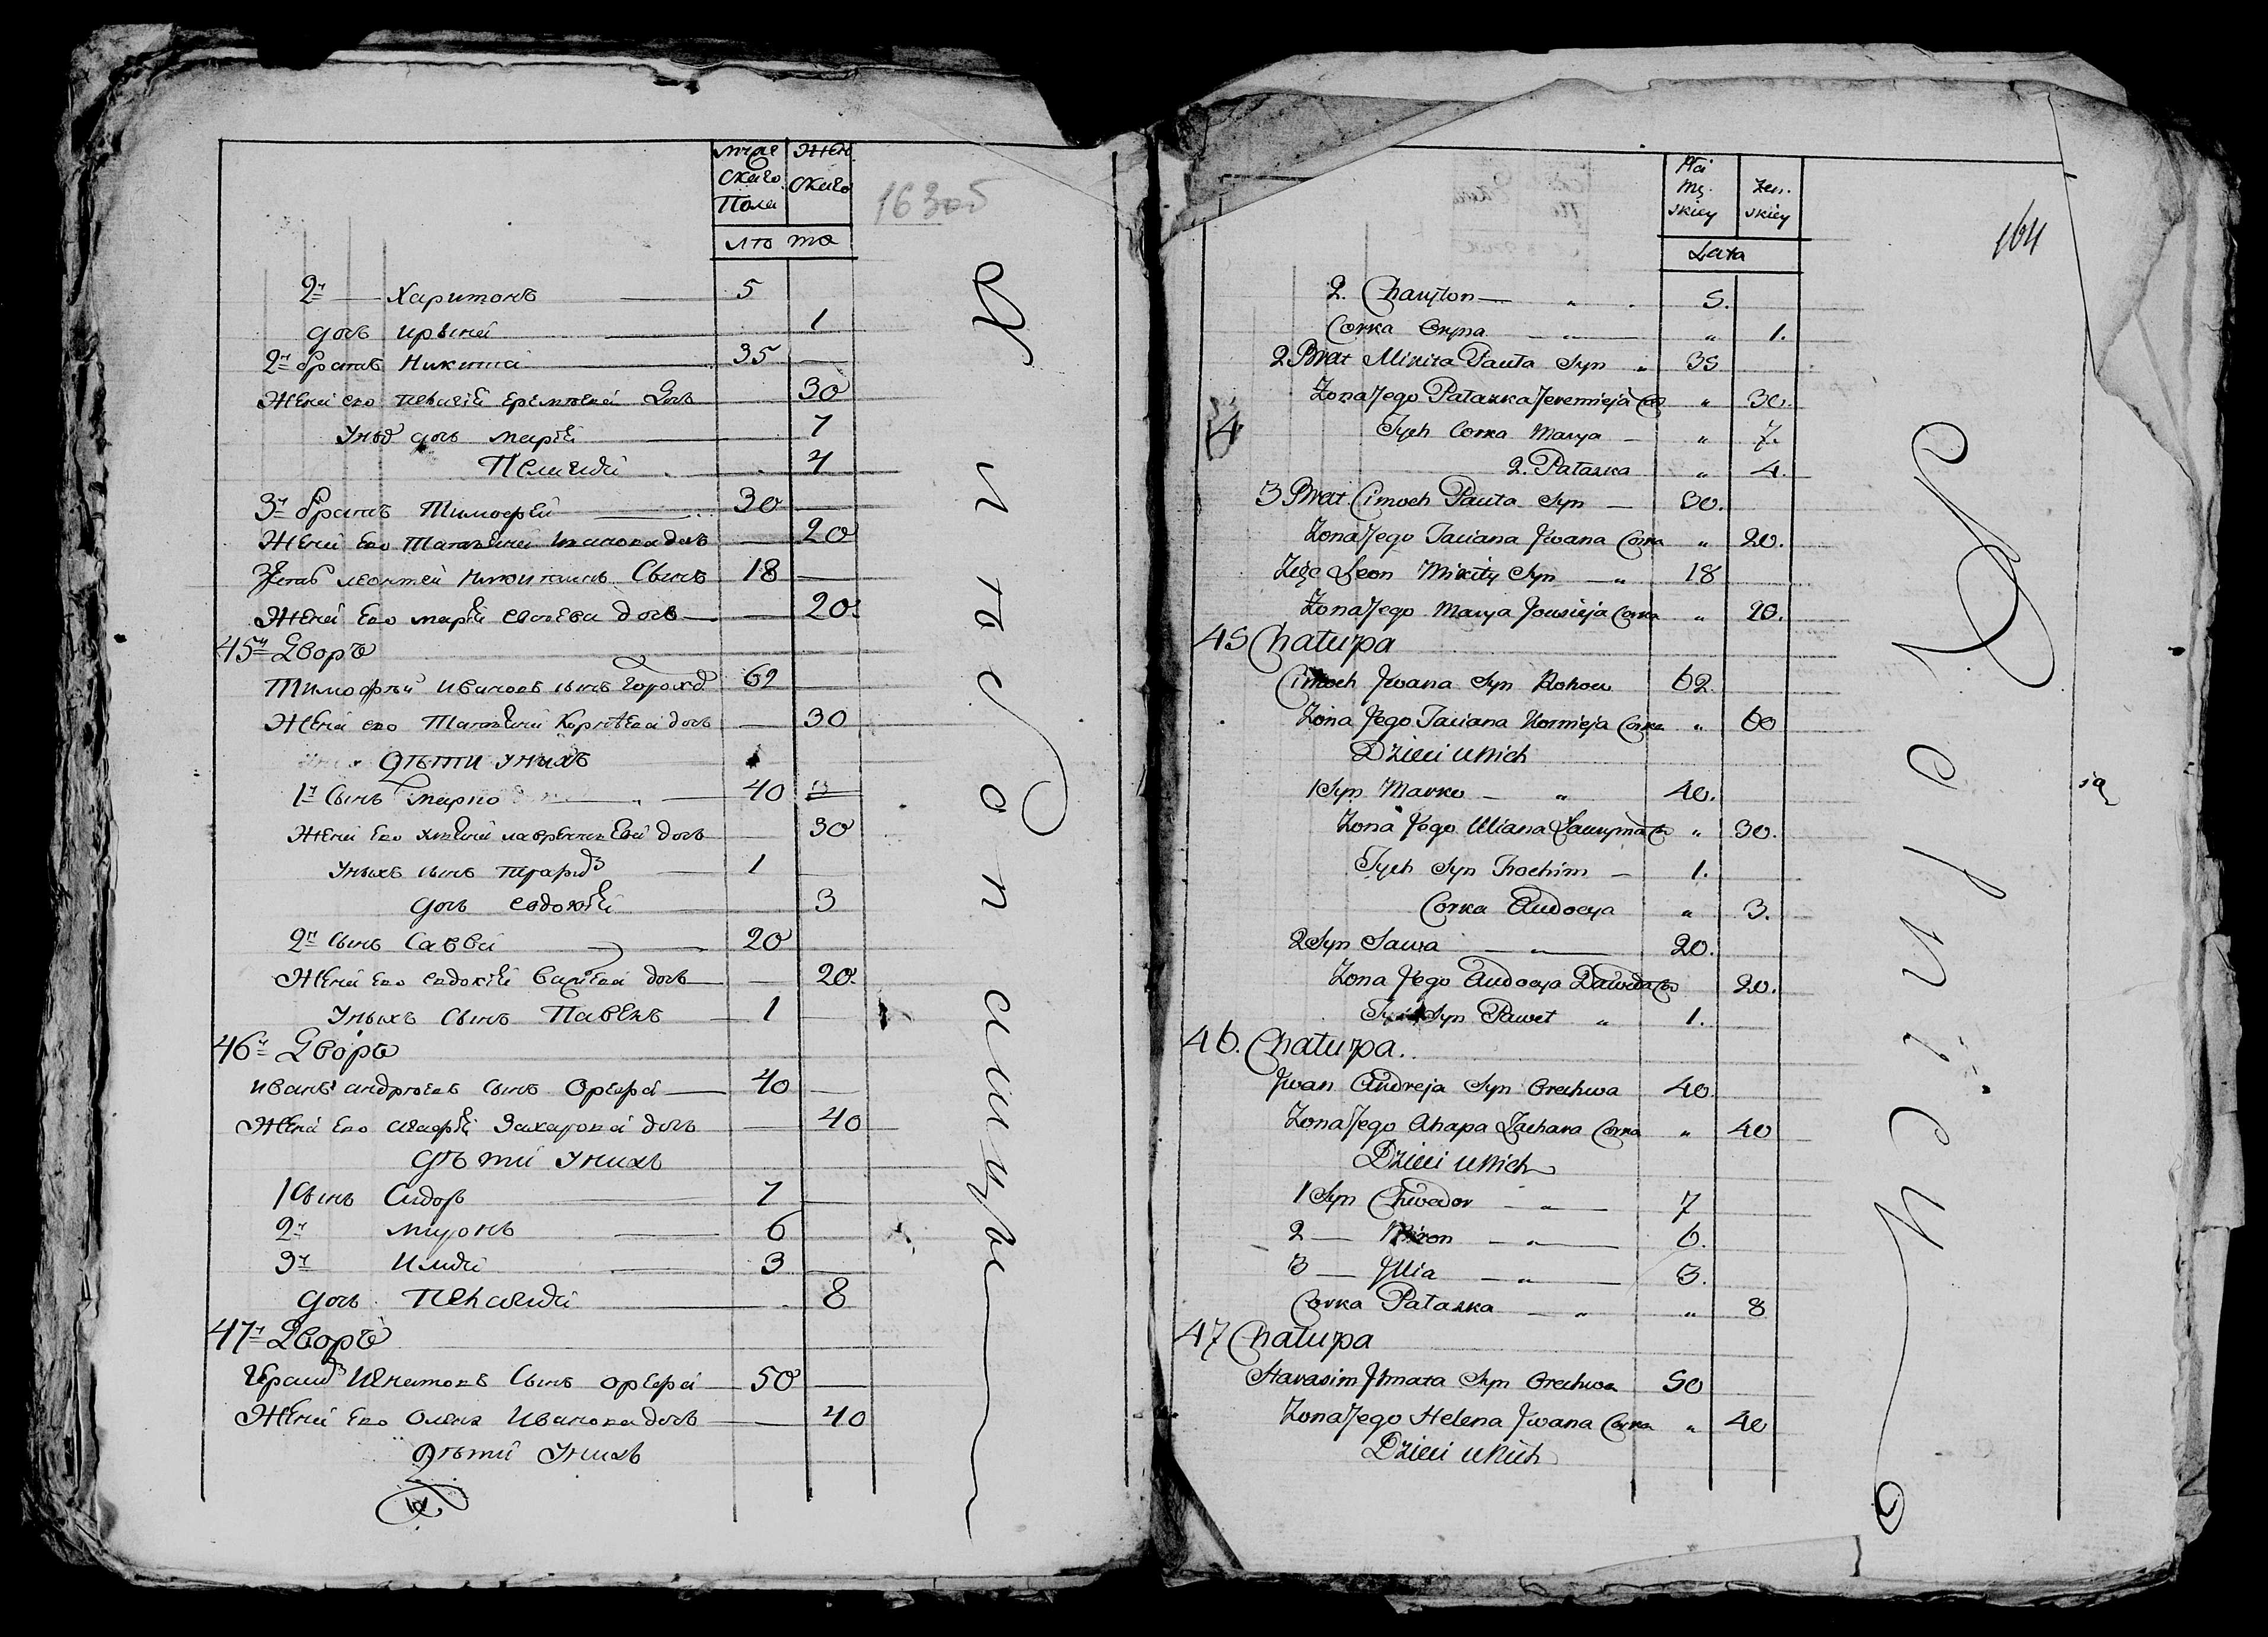 муж
скаго
Пола
жен
скаго
лѣ та
163об
2й Харитонъ 5
дочь Ирына 1
2й братъ Никита 35
Жена ево Пелагія Еремѣева дочь 30
У нихъ дочь Марія 7
Пелагія 4
3й братъ Тимофей 30
Жена Ево Татьяна Иванова дочь 20
Зять Леонтей Никитинъ Сынъ 18
Жена Ево Марія дочь 20
45й Дворъ
Тимофей Ивановъ сынъ 62
Жена ево Татьяна Корнѣева дочь 30
дѣти у нихъ
1й Сынъ Марко 40
Жена Ево дочь 30
У нихъ сынъ 1
дочь Евдокія 3
2й сынъ Савва 20
Жена Ево Евдокія дочь 20
У нихъ Сынъ Павелъ 1
46й Дворъ
Иванъ Андрѣевъ сынъ 40
Жена Ево Агафія Захарова дочь 40
дѣти у нихъ
1 Сынъ Сидоръ 7
2й Миронъ 6
3й Илья 3
дочь Пелагія 8
47й Дворъ
Игнатовъ Сынъ 50
Жена Ево Олена Иванова дочь 40
дѣти у нихъ
Płci
Mę.
skiey
żen.
skiey
Lata
164
2. Charyton 5.
Corka Oryna " 1.
2 Brat Mikita Pauła Syn " 35
Żona Jego Pałażka Jeremieja Cor " 30.
Tych Corka Marya " 7.
2. Pałażka " 4.
3 Brat Cimoch Pauła Syn 30.
Żona Jego Taciana Jwana Corka " 20.
Zięc Leon Mikity Syn " 18
Żona Jego Marya Jousieja Corka " 20.
45 Chałupa
Cimoch Jwana Syn 62.
Żona Jego Taciana Kornieja Corka " 60
Dzieci u nich
1 Syn Marko " 40.
Żona Jego Uliana " 30.
Tych Syn Trochim 1.
Corka Audocya " 3.
2 Syn Sawa " 20.
Żona Jego Audocya Dawida Co 20.
Tych Syn Paweł " 1.
46. Chałupa.
Jwan Andreja Syn Orechwa 40.
Żona Jego Ahapa Zachara Corka " 40
Dzieci u nich
1 Syn Chwedor " 7
2 Miron " 6.
3 Jllia " 3.
Corka Pałażka " " 8
47 Chałupa
Harasim Jhnata Syn Orechwa 50
Żona Jego Helena Jwana Corka " 40
Dzieci u nich